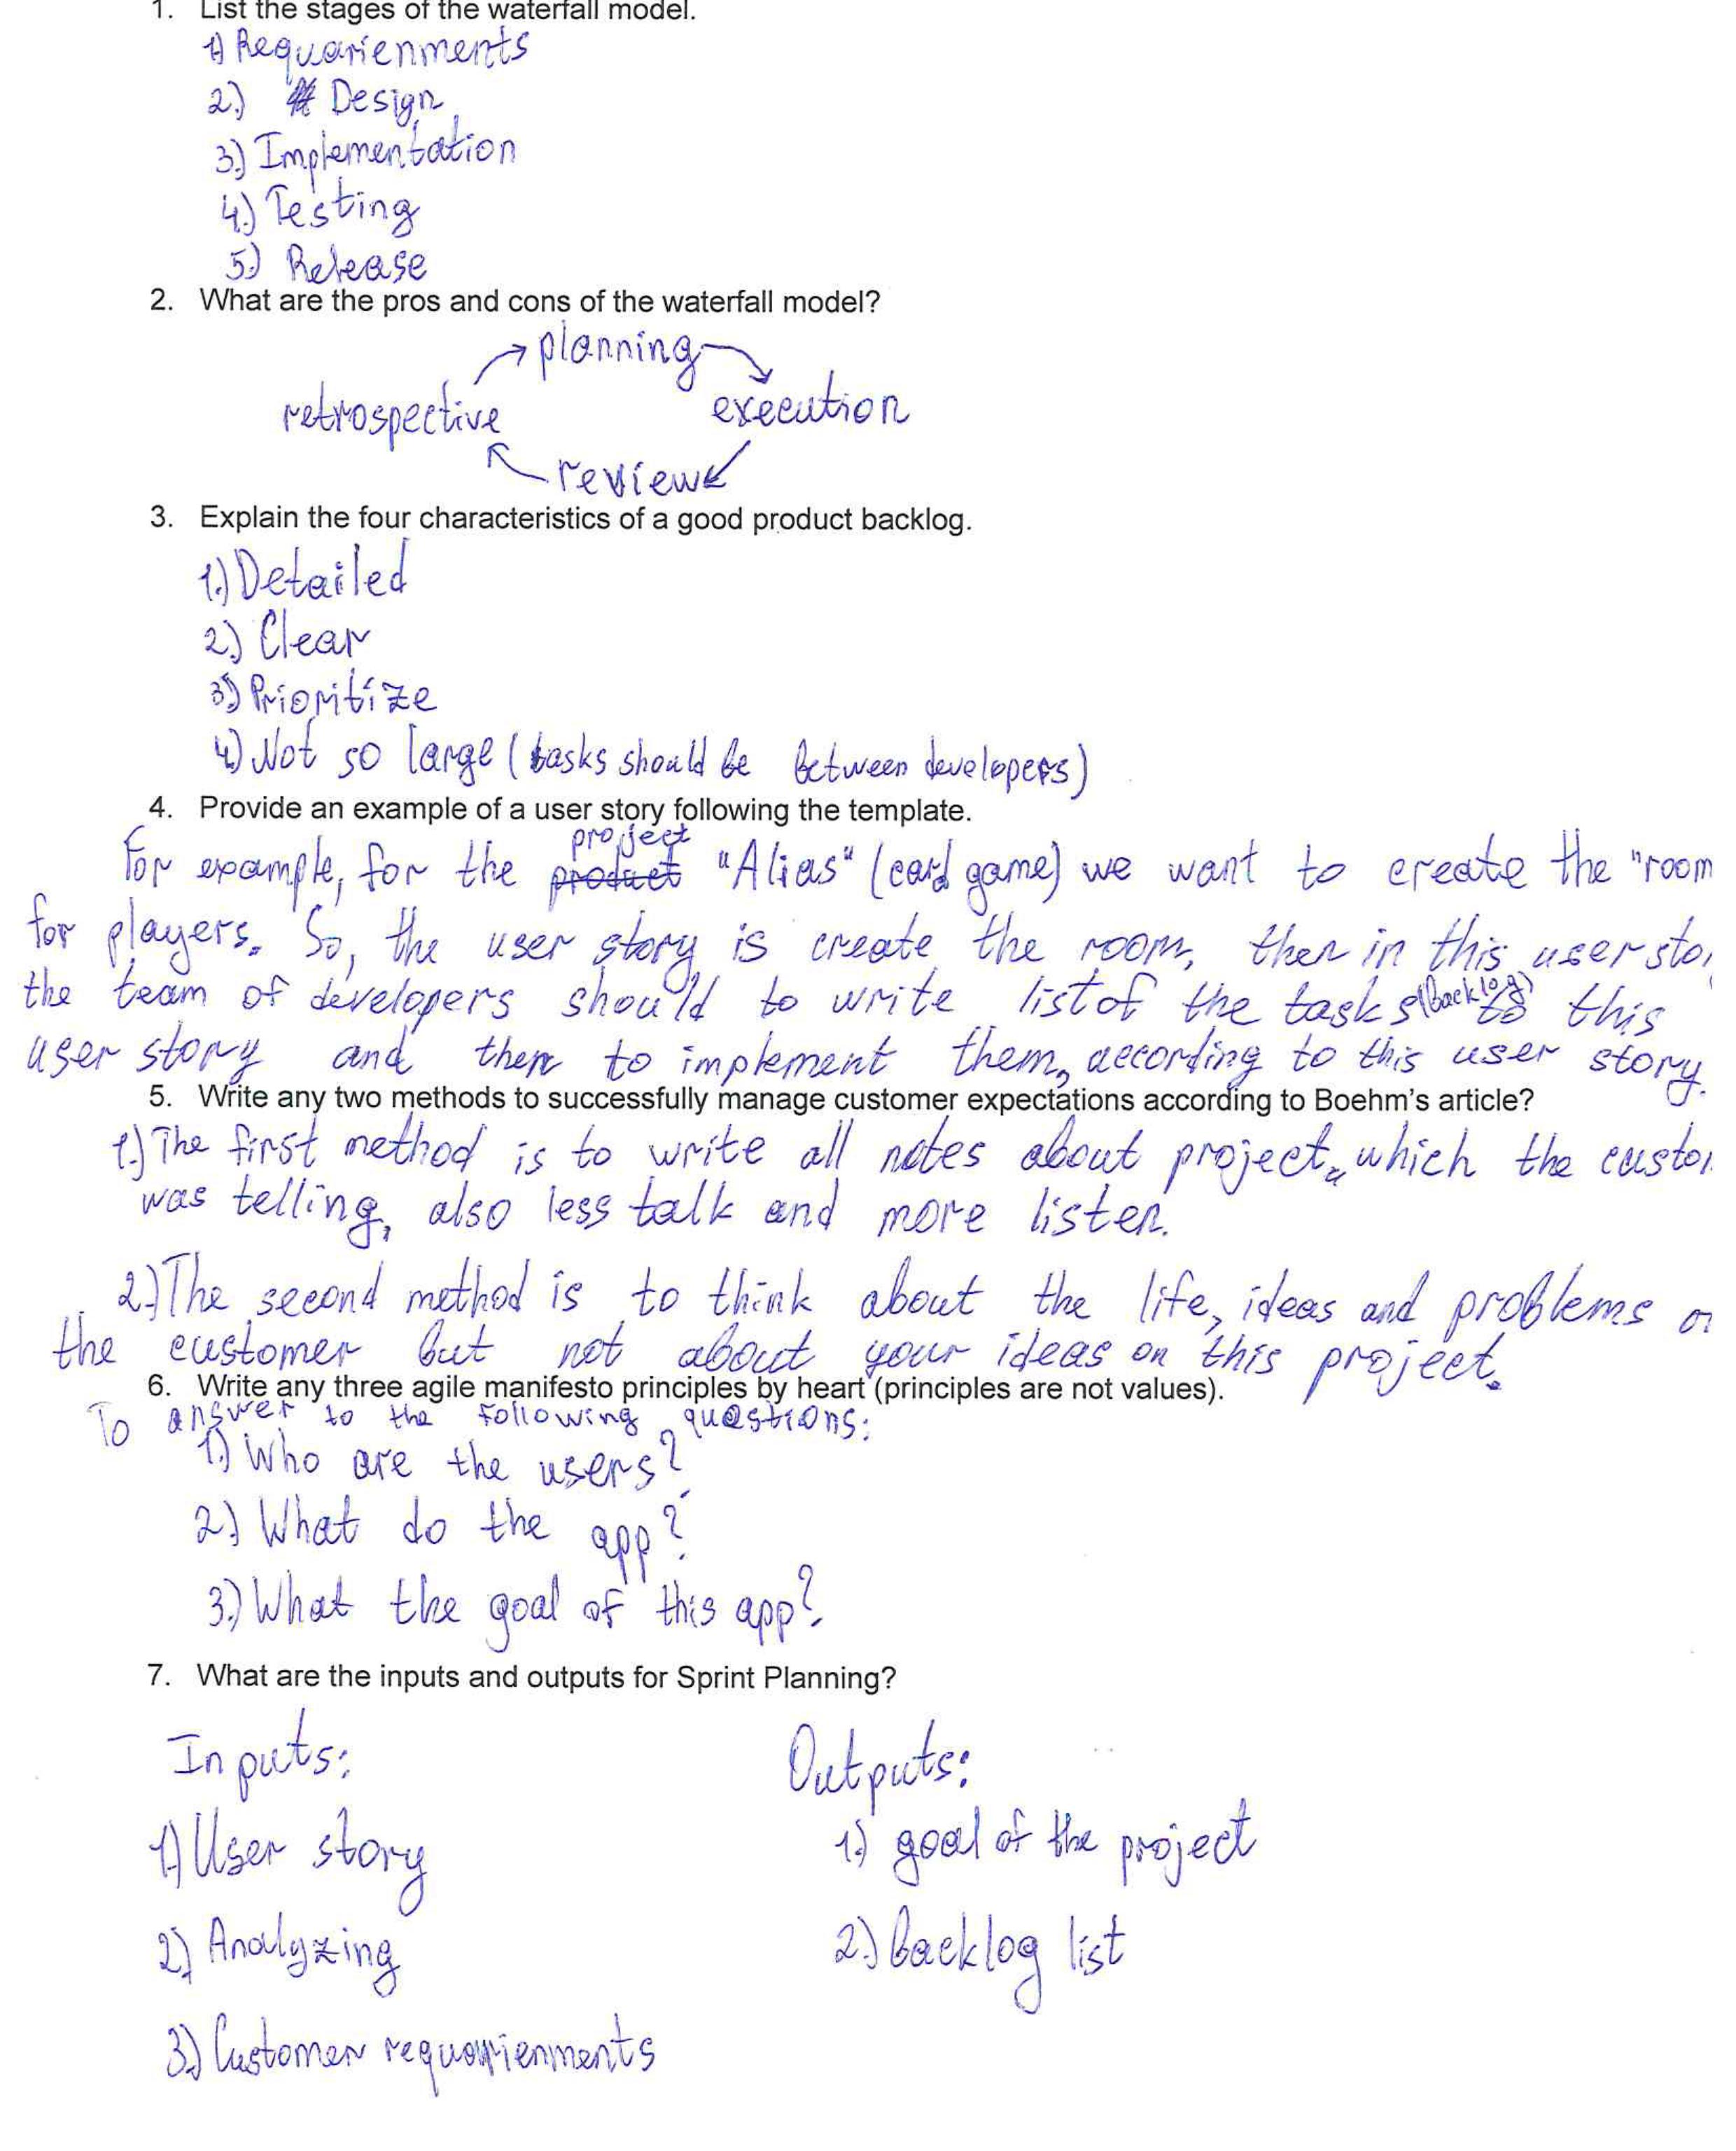 1. List the stages of the waterfall model.
1) Requarienments
2.) Design
3.) Implementation
4.) Testing
5.) Release
2. What are the pros and cons of the waterfall model?
planning
retrospective execution
review
3. Explain the four characteristics of a good product backlog.
1.) Detailed
2.) Clear
3.) Prioritize
4.) Not so large (tasks should be between developers)
4. Provide an example of a user story following the template.
project
For example, for the product "Alias" (card game) we want to create the "room
for players. So, the user story is create the room, then in this user sto
the team of developers should to write list of the tasks (backlog) to this
user story and then to implement them, according to this user story.
5. Write any two methods to successfully manage customer expectations according to Boehm's article?
1.) The first method is to write all notes about project, which the custo
was telling, also less talk and more listen.
2.) The second method is to think about the life, ideas and problems o
the customer but not about your ideas on this project.
6. Write any three agile manifesto principles by heart (principles are not values).
To answer to the following questions:
1.) Who are the users?
2.) What do the app?
3.) What the goal of this app?
7. What are the inputs and outputs for Sprint Planning?
Inputs: Outputs:
1) User story 1.) goal of the project
2.) Analyzing 2.) Backlog list
3.) Customer requarienments